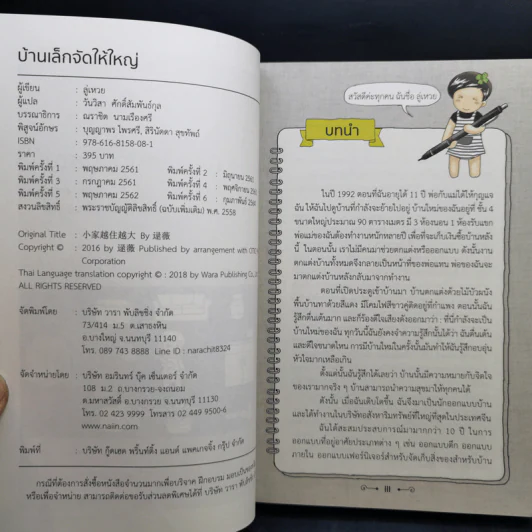 บ้านเล็กจัดให้ใหญ่
ผู้เขียน : ลู่เหวย
ผู้แปล : วันวิสา ศักดิ์สัมพันธ์กุล
บรรณาธิการ : ณราชิต นามเรืองศรี
พิสูจน์อักษร : บุญญาพร ไพรศรี, สิรินัดดา สุขทัพย์
ISBN : 978-616-8158-08-1
ราคา : 395 บาท
พิมพ์ครั้งที่ 1 : พฤษภาคม 2561 พิมพ์ครั้งที่ 2 : มิถุนายน 2561
พิมพ์ครั้งที่ 3 : กรกฎาคม 2561 พิมพ์ครั้งที่ 4 : พฤศจิกายน 2561
พิมพ์ครั้งที่ 5 : พฤษภาคม 2562 พิมพ์ครั้งที่ 6 : กุมภาพันธ์
สงวนลิขสิทธิ์ : พระราชบัญญัติลิขสิทธิ์ (ฉบับเพิ่มเติม) พ.ศ. 2558
Original Title : 小家越住越大 By 逯薇
Copyright © : 2016 by 逯薇 Published by arrangement with
Corporation
Thai Language translation copyright © : 2018 by Wara Publishing
ALL RIGHTS RESERVED
จัดพิมพ์โดย : บริษัท วารา พับลิชชิ่ง จำกัด
73/414 ม.5 ต.เสาธงหิน
อ.บางใหญ่ จ.นนทบุรี 11140
โทร. 089 743 8888 Line ID : narachit8324
จัดจำหน่ายโดย : บริษัท อมรินทร์ บุ๊ค เซ็นเตอร์ จำกัด
108 ม.2 ถ.บางกรวย-จงถนอม
ต.มหาสวัสดิ์ อ.บางกรวย จ.นนทบุรี 11130
โทร. 02 423 9999 โทรสาร 02 449 9500-6
www.naiin.com
พิมพ์ที่ : บริษัท กู๊ดเฮด พริ้นท์ติ้ง แอนด์ แพคเกจจิ้ง กรุ๊ป จำกัด
กรณีที่ต้องการสั่งซื้อหนังสือจำนวนมากเพื่อบริจาค ฝึกอบรม มอบเป็นของ
หรือเพื่อจำหน่าย สามารถติดต่อขอรับส่วนลดพิเศษได้ที่ บริษัท วารา
สวัสดีค่ะทุกคน ฉันชื่อ ลู่เหวย
บทนำ
ในปี 1992 ตอนที่ฉันอายุได้ 11 ปี พ่อกับแม่ได้ให้กุญแจ
ฉัน ให้ฉันไปดูบ้านที่กำลังจะย้ายไปอยู่ บ้านใหม่ของฉันอยู่ที่ ชั้น 4
ขนาดใหญ่ประมาณ 90 ตารางเมตร มี 3 ห้องนอน 1 ห้องรับแขก
พ่อแม่ของฉันต้องทำงานหนักหลายปี เพื่อที่จะเก็บเงินซื้อบ้านหลัง
นี้ ในตอนนั้น เราไม่มีคนมาช่วยตกแต่งหรือออกแบบ ดังนั้นงาน
ตกแต่งบ้านทั้งหมดจึงกลายเป็นหน้าที่ของพ่อแทน พ่อของฉันจะ
มาตกแต่งบ้านหลังกลับมาจากทำงาน
ตอนที่เปิดประตูเข้าบ้านมา บ้านตกแต่งด้วยไม้บัวผนัง
พื้นบ้านทาด้วยสีแดง มีโคมไฟสีขาวคู่ติดอยู่ที่กำแพง ตอนนั้นฉัน
รู้สึกตื่นเต้นมาก และก็ร้องดีใจเสียงดังออกมาว่า : ที่นี่กำลังจะเป็น
บ้านใหม่ของฉัน ทุกวันนี้ฉันยังคงจำความรู้สึกนั้นได้ว่า ฉันตื่นเต้น
และดีใจขนาดไหน การมีบ้านใหม่ในครั้งนั้นมันทำให้ฉันรู้สึกอบอุ่น
หัวใจมากเหลือเกิน
ตั้งแต่นั้นฉันรู้สึกได้เลยว่า บ้านนั้นมีความหมายกับจิตใจ
ของเรามากจริง ๆ บ้านสามารถนำความสุขมาให้ทุกคนได้
ดังนั้น เมื่อฉันเติบโตขึ้น ฉันจึงมาเป็นนักออกแบบบ้าน
และได้ทำงานในบริษัทอสังหาริมทรัพย์ที่ใหญ่ที่สุดในประเทศจีน
ฉันได้สะสมประสบการณ์มามากกว่า 10 ปี ในการ
ออกแบบที่อยู่อาศัยประเภทต่าง ๆ เช่น ออกแบบตึก ออกแบบ
ภายใน ออกแบบเฟอร์นิเจอร์สำหรับจัดเก็บสิ่งของสำหรับบ้าน
III